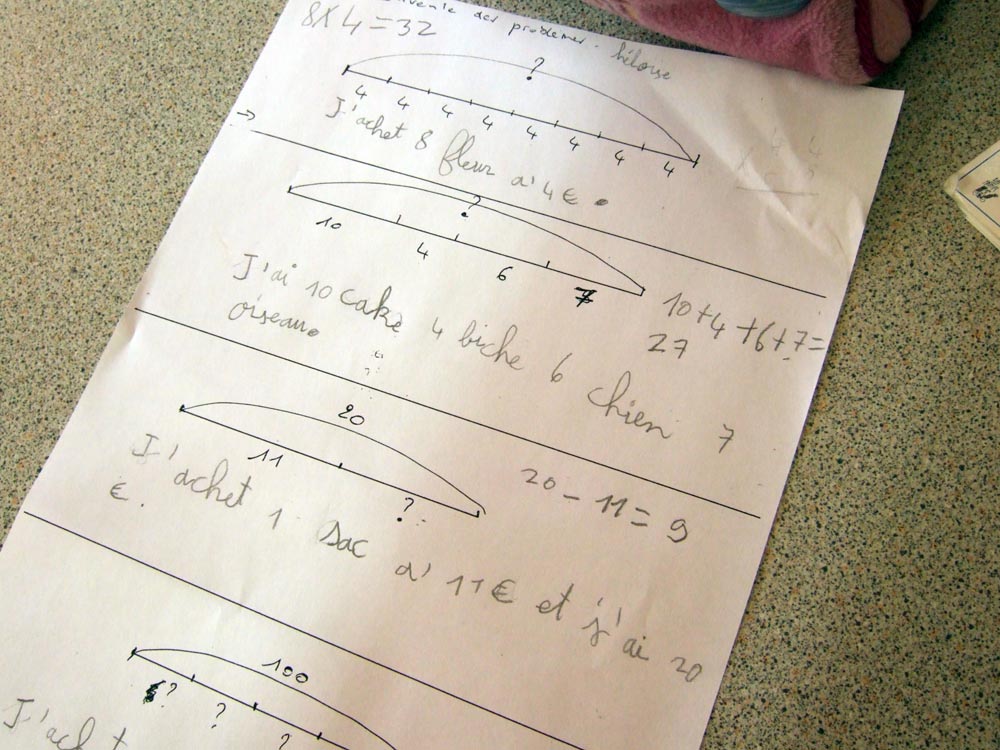 8 x 4 = 32
des problèmes.
?
4 4 4 4 4 4 4 4
J'achet 8 fleur a' 4€.
?
10 4 6 7
10+4+6+7=
27
J'ai 10 cake 4 biche 6 chien 7
oiseau.
20
11 ?
20 - 11 = 9
J'achet 1 sac a' 11€ et j'ai 20
€.
100
? ? ?
J'achet